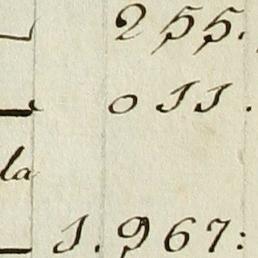 255.
011.
la
1.967: